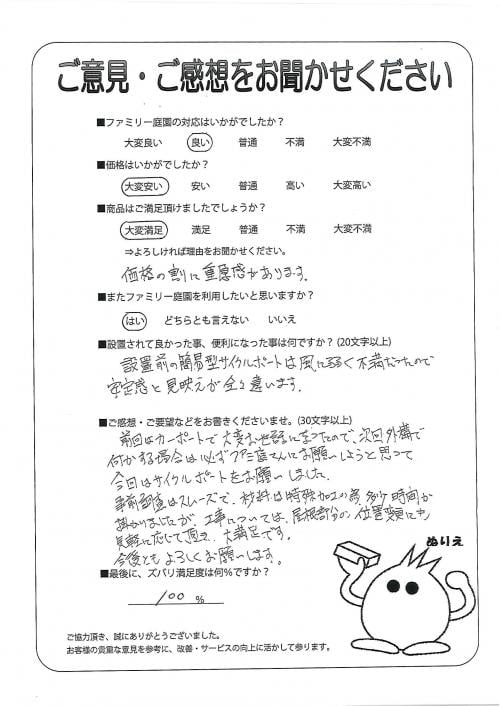 ご意見・ご感想をお聞かせください
■ファミリー庭園の対応はいかがでしたか？
大変良い 良い 普通 不満 大変不満
■価格はいかがでしたか？
大変安い 安い 普通 高い 大変高い
■商品はご満足頂けましたでしょうか？
大変満足 満足 普通 不満 大変不満
⇒よろしければ理由をお聞かせください。
価格の割に重厚感があります。
■またファミリー庭園を利用したいと思いますか？
はい どちらとも言えない いいえ
■設置されて良かった事、便利になった事は何ですか？(20文字以上)
設置前の簡易型サイクルポートは風に弱く不満だったので
安定感と見映えが全々違います。
■ご感想・ご要望などをお書きくださいませ。(30文字以上)
前回はカーポートで大変お世話になったので、次回外構で
何かする場合は必ずファミ庭さんにお願いしようと思って
今回はサイクルポートをお願いしました。
事前調査はスムーズで、材料は特殊加工の為、多少時間が
掛かりましたが、工事については、屋根部分の位置変更にも
気軽に応じて頂き、大満足です。
今後ともよろしくお願いします。
■最後に、ズバリ満足度は何％ですか？
100 %
ぬりえ
ご協力頂き、誠にありがとうございました。
お客様の貴重な意見を参考に、改善・サービスの向上に活かして参ります。